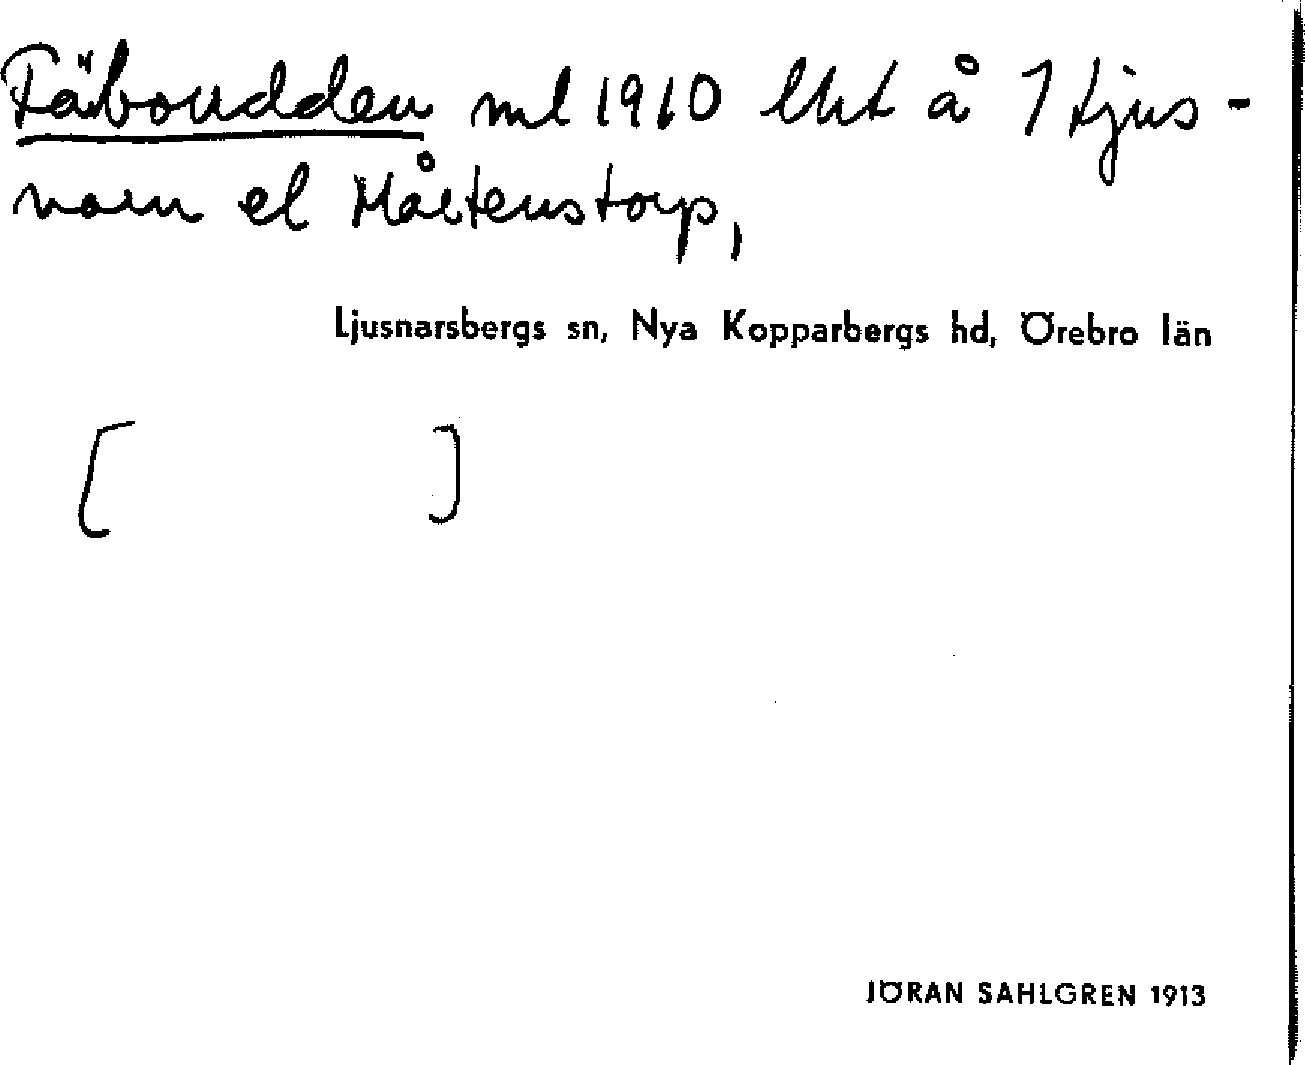 Fäboudden ml 1910 lht å 1 Ljus-
narn el Mårtenstorp,
Ljusnarsbergs sn, Nya Kopparbergs hd, Örebro län
[ ]
JÖRAN SAHLGREN 1913